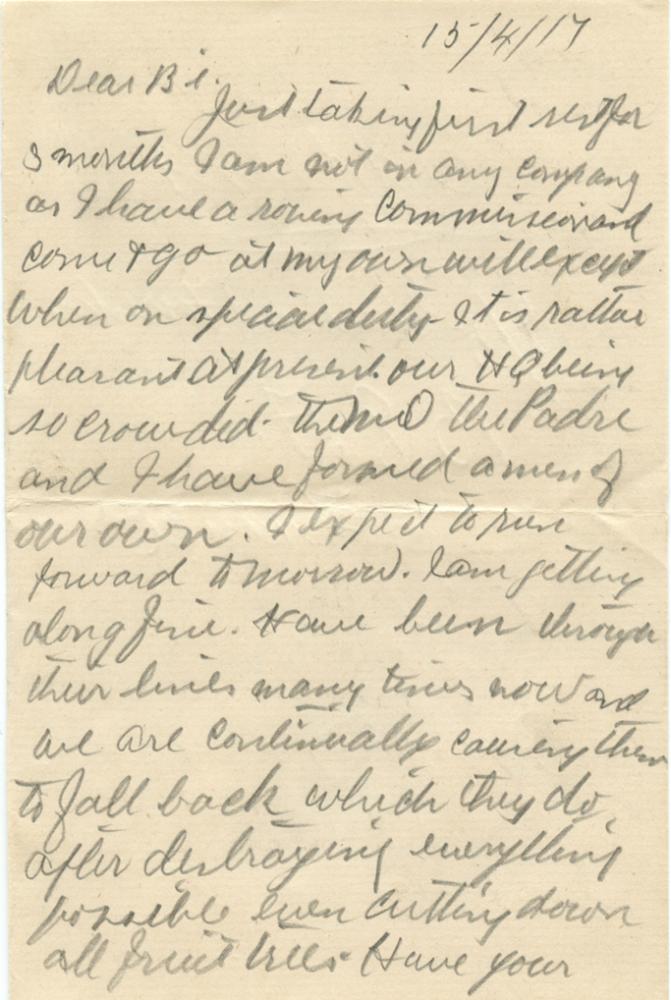 15/4/17
Dear Bi.
Just taking first rest for
3 months I am not in any company
as I have a roving Commission and
come & go at my own will except
when on special duty. It is rather
pleasant at present. our HQ being
so crowded. the MO the Padre
and I have formed a mess of
our own. I expect to run
forward tomorrow. I am getting
along fine. Have been through
their lines many times now and
we are continually causing them
to fall back which they do
after destroying everything
possible even cutting down
all fruit trees. Have your